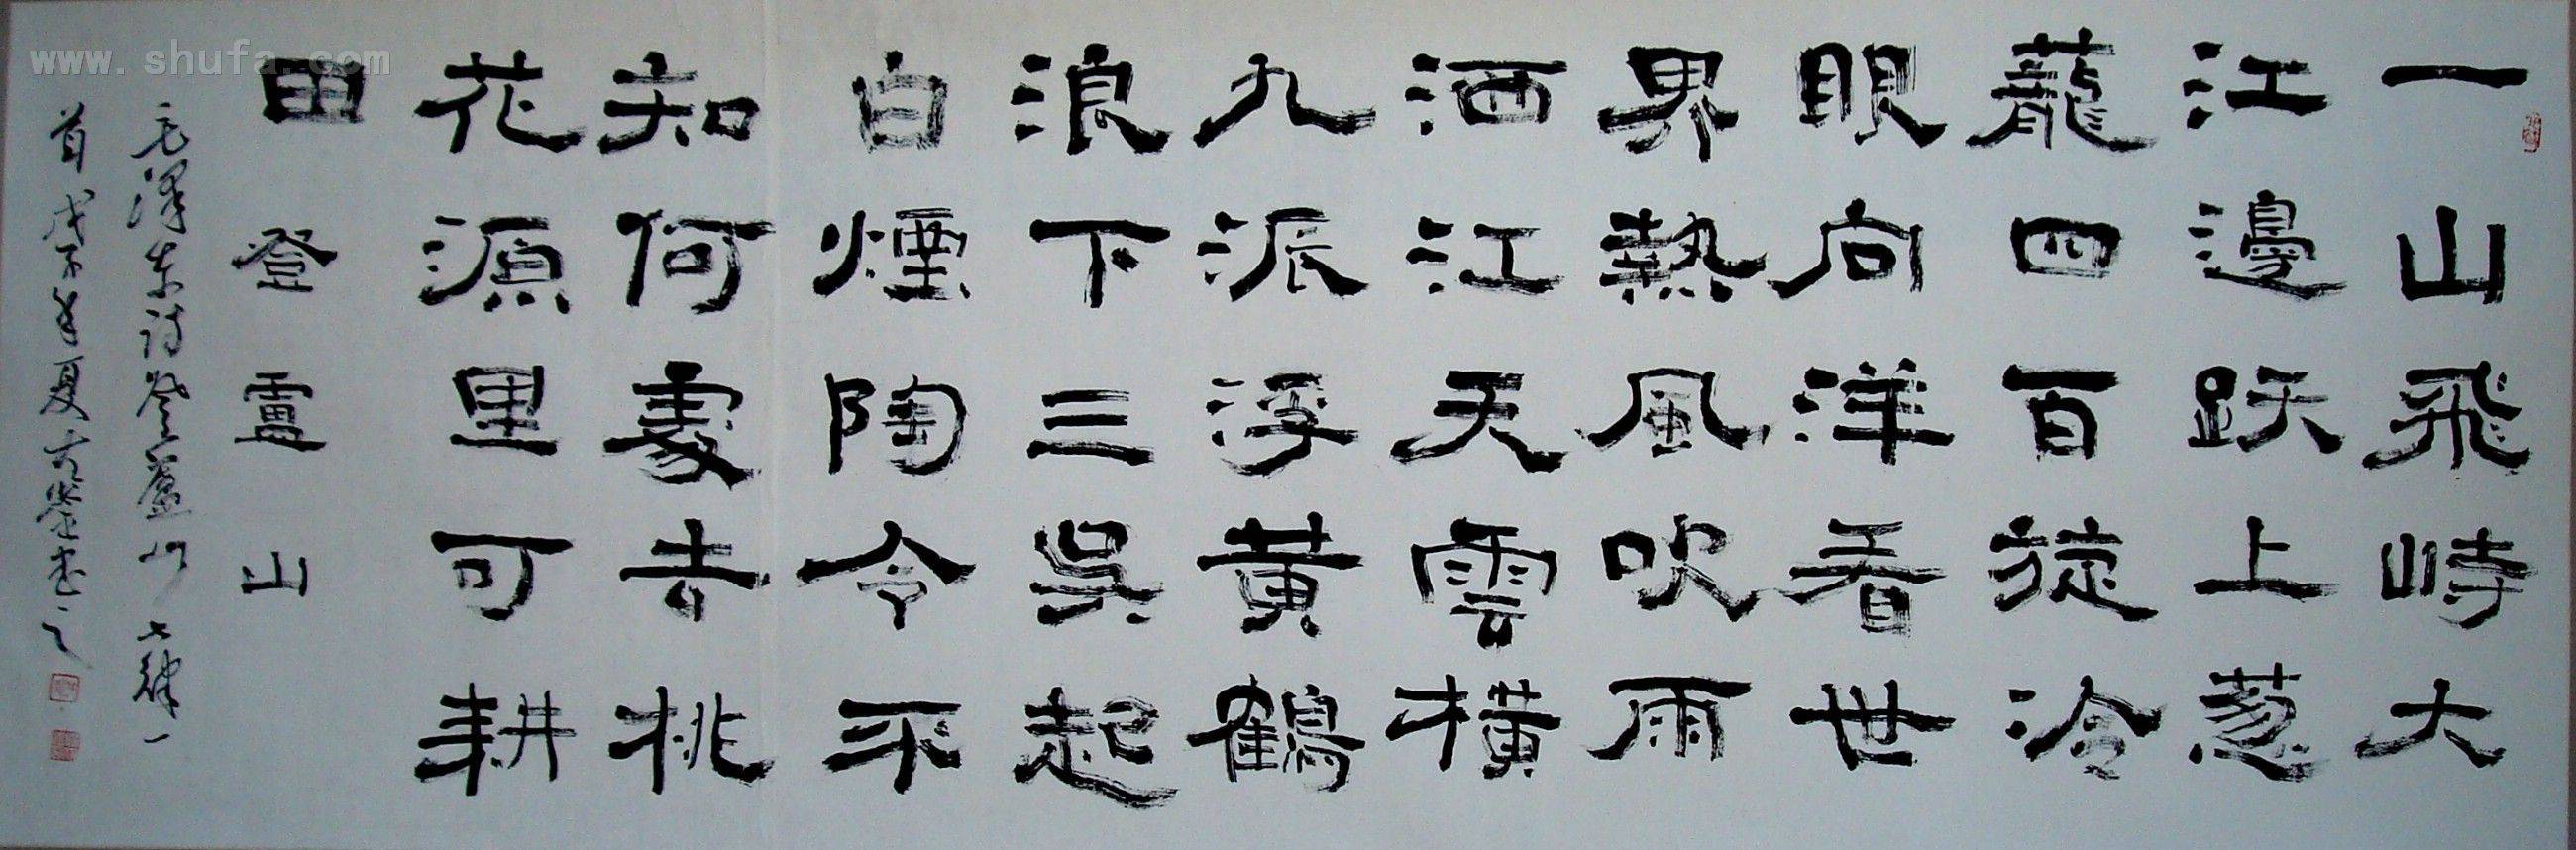 www.shufa.com
一山飛峙大
江邊跃上葱
蘢四百旋冷
眼向洋看世
界熱風吹雨
洒江天雲橫
九派浮黃鶴
浪下三吳起
白煙陶令不
知何處去桃
花源里可耕
田 登盧山
毛澤东诗登廬山七律一
首 戊子年夏